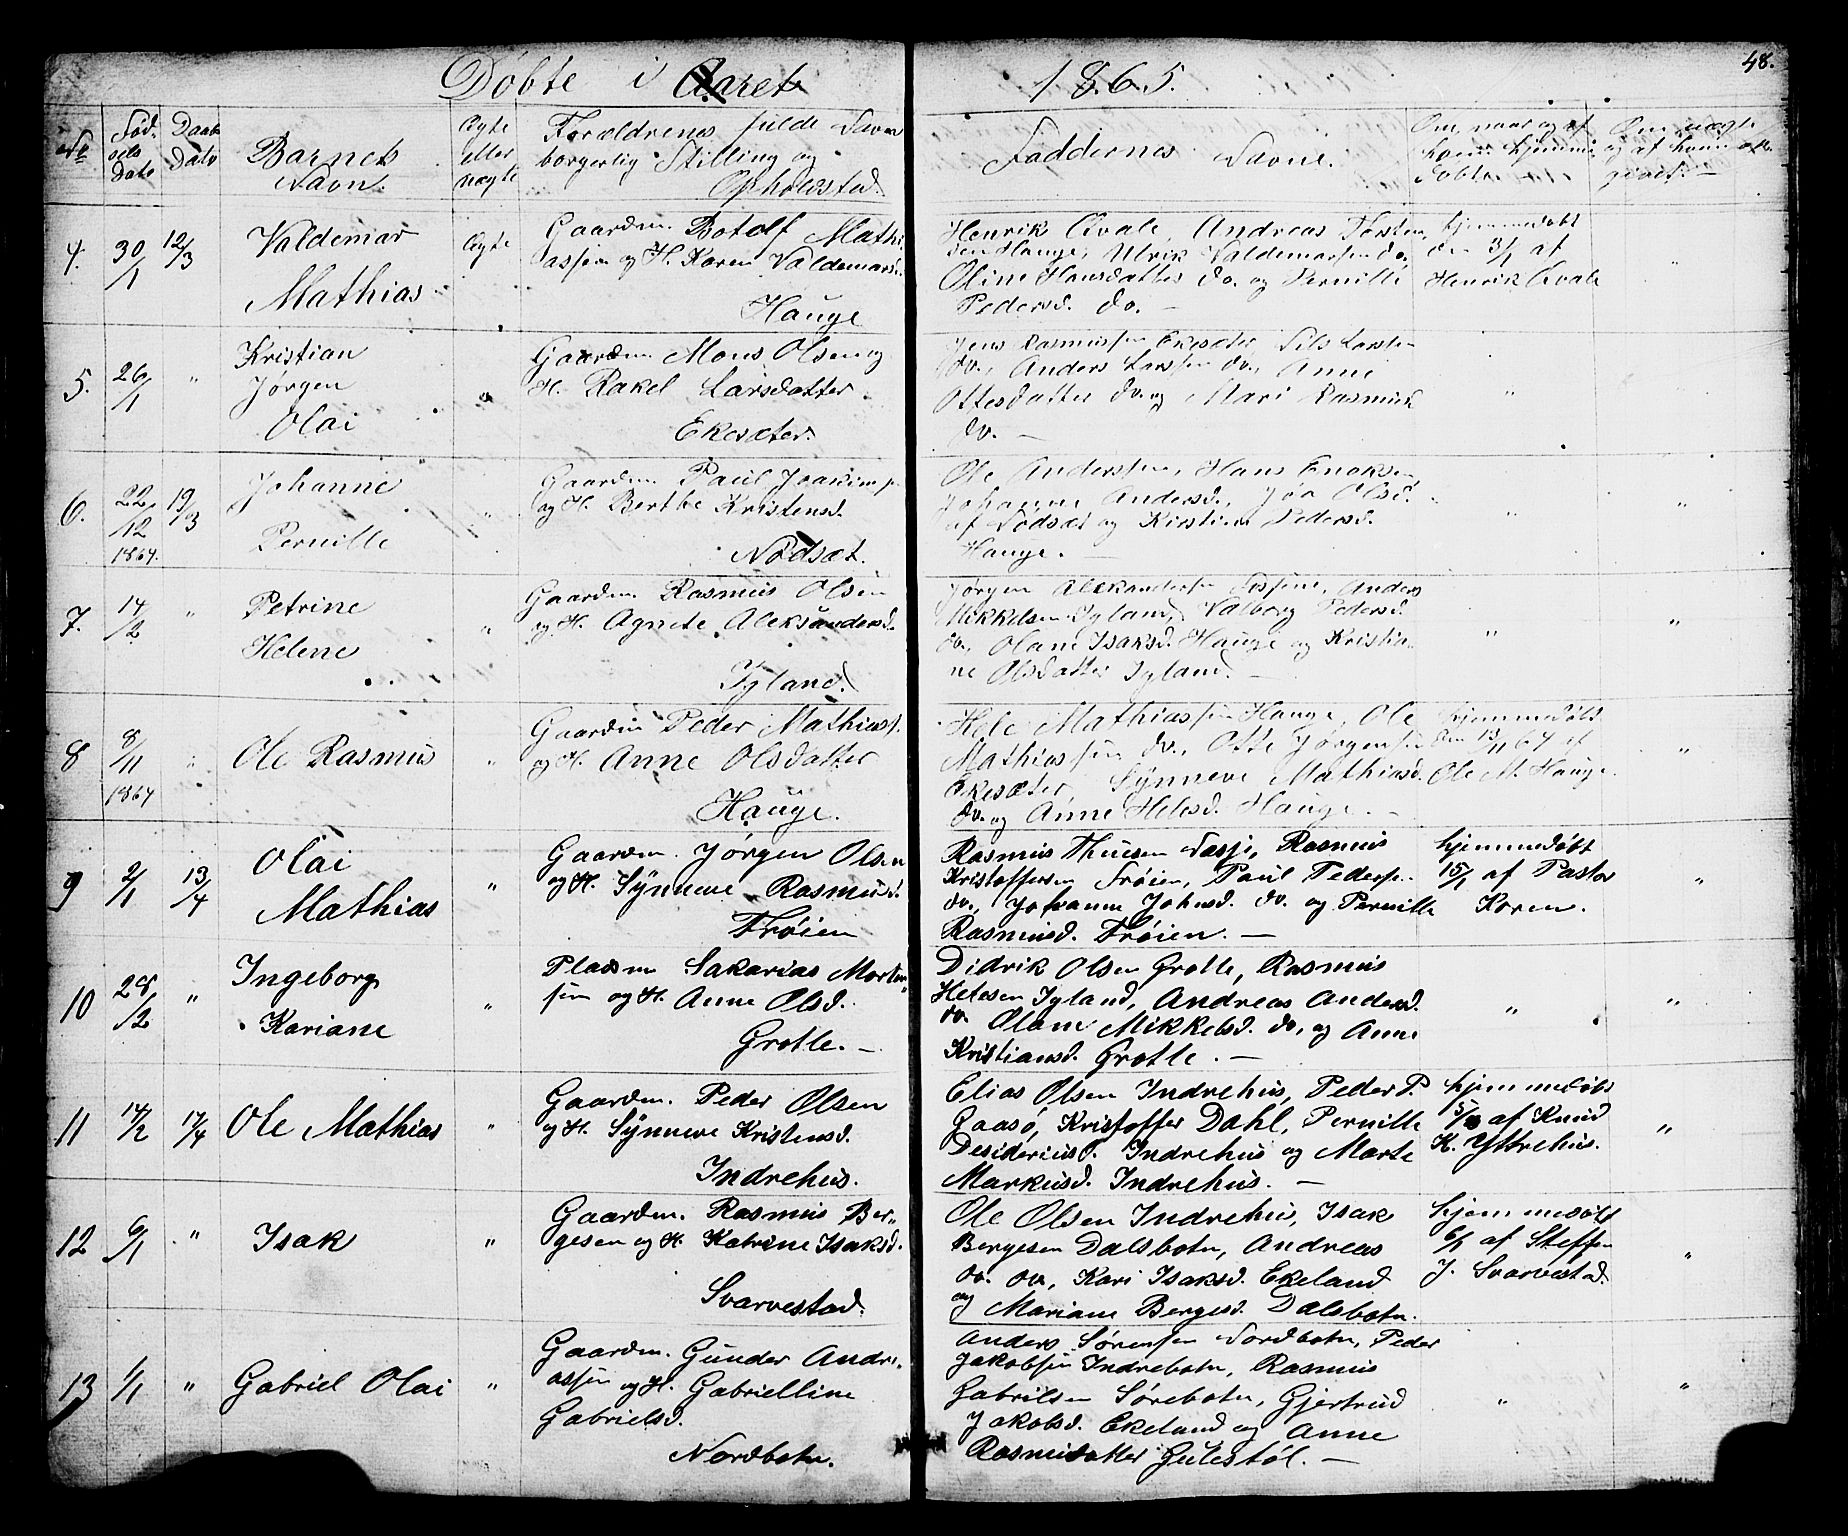 48.
Døbte i Aaret 1865.
No
Fød-
sels
Dato
Daabs
Dato
Barnets
Navn.
Ægte
eller
uægte
Forældrenes fulde Navn
borgerlig Stilling og
Opholdsted.
Faddernes Navne.
Om, naar og af
hvem hjemme-
døbt.
4. 30/1 12/3 Valdemar
Mathias
Ægte
Gaardm. Botolf Mathi-
assen og H. Karen Valdemarsd.
Hauge
Henrik Qvale, Andreas Torsten-
sen Hauge, Ulrik Valdemarsen do,
Oline Hansdatter do. og Pernille
Pedersd. do. —
hjemmedøbt
den 31/1 af
Henrik Qvale
5. 26/1 " Kristian
Jørgen
Olai
"
Gaardm. Mons Olsen og
H. Rakel Larsdatter
Ekesæter.
Jens Rasmussen Ekesæter, Nils Larsen
do., Anders Larssen do., Anne
Ottesdatter do. og Mari Rasmusd.
do. —
"
6. 22/12 1864. 19/3 Johanne
Pernille
"
Gaardm. Paul Joakims.
og H. Berthe Kristensd.
Nødsæt.
Ole Anderssen, Hans Enoksen,
Johanne Andersd., Olsd.
af Nødsæt og Kirstine Pedersd.
Hauge. —
" "
7. 14/2 " Petrine
Helene
"
Gaardm. Rasmus Olsen
og H. Agnete Aleksandersd.
Igland.
Jørgen Aleksandersen, Anders
Mikkelsen Igland, Valborg Pedersd.
do., Olane Isaksd. Hauge og Kristia-
ne Olsdatter Igland. —
" "
8 8/11 1864 " Ole Rasmus "
Gaardm Peder Mathiass.
og H. Anne Olsdatter
Hauge.
Hele Mathiassen Hauge, Ole
Mathiassen do., Otte Jørgensen
Ekesæter, Synneve Mathiasd.
do. og Anne Helesd. Hauge. —
hjemmedøbt
den 13/11 64 af
Ole M. Hauge.
"
9 2/1 13/4 Olai
Mathias
"
Gaardm. Jørgen Olsen
og H. Synneve Rasmusd.
Frøien
Rasmus Thuesen, Rasmus
Kristoffersen Frøien, Paul Peders.
do., Johanne Johnsd. do. og Pernille
Rasmusd. Frøien. —
hjemmedøbt
15/1 af Pastor
Koren.
"
10 28/12 " Ingeborg
Kariane
"
Pladsm Sakarias Morten-
sen og H. Anne Olsd.
Grotle. —
Didrik Olsen Grotle, Rasmus
Helesen Igland, Andreas Andersd.
do. Olane Mikkelsd. do, og Anne
Kristiansd. Grotle. —
" "
11 14/2 17/4 Ole Mathias "
Gaardm. Peder Olsen
og H. Synneve Kristensd.
Indrehus.
Elias Olsen Indrehus, Peder P.
Gaasø, Kristoffer Dahl, Pernille
Desideriusd. Indrehus og Marte
Markusd. Indrehus. —
hjemmedøbt
af Knud
K. Yttrehus.
"
12 6/1 " Isak "
Gaardm. Rasmus Ber-
gesen og H. Katrine Isaksd.
Svarvestad.
Ole Olsen Indrehus, Isak
Bergesen Dalsbotn, Andreas
do. do, Kari Isaksd. Ekeland
og Mariane Bergesd. Dalsbotn.
hjemmedøbt
6/1 af Steffen
J. Svarvestad
"
13 1/1 " Gabriel Olai "
Gaardm. Gunder Andre-
assen og H. Gabrielline
Gabrielsd.
Nordbotn.
Anders Sørensen Nordbotn, Peder
Jakobsen Indrebotn, Rasmus
Gabrilsen Sørebotn, Gjertrud
Jakobsd. Ekeland og Anne
Rasmusdatter Gulestøl. —
" "